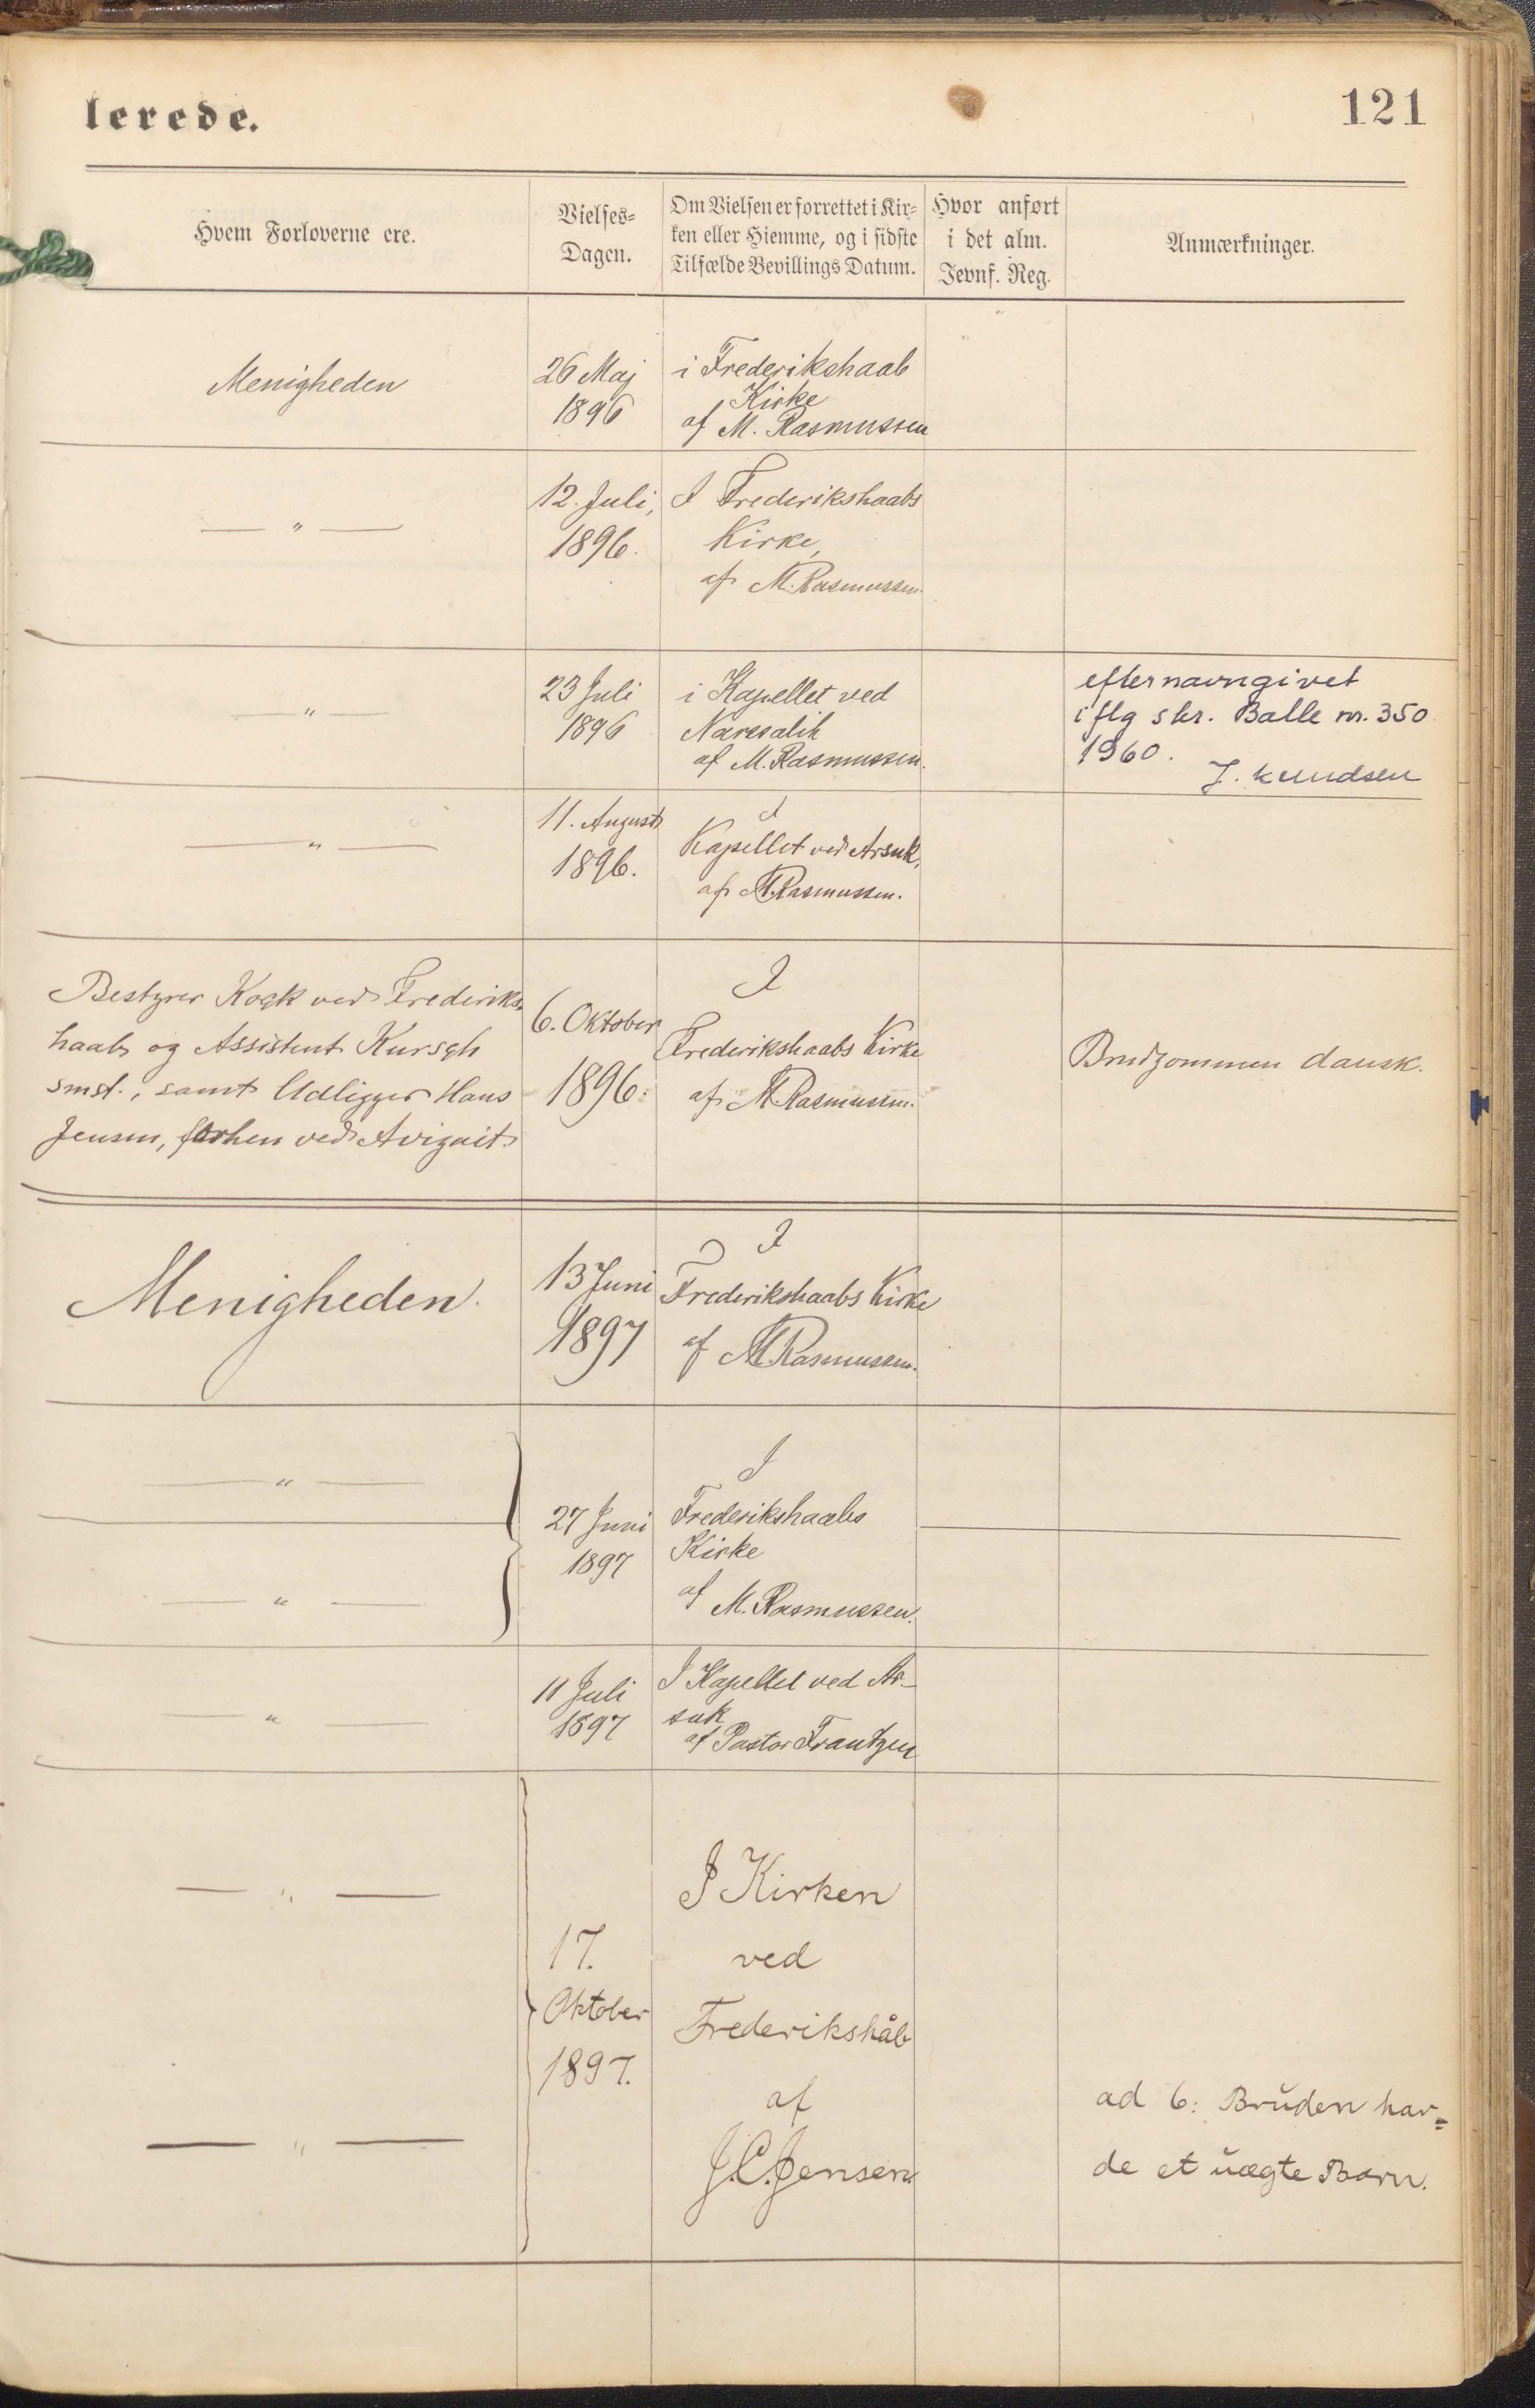 lerede.
121
Hvem Forloverne ere.
Vielses-
Dagen.
Om Vielsen er forrettet i Kir-
ken eller Hjemme, og i sidste
Tilfælde Bevillings Datum.
Hvor anført
i det alm.
Jevnf. Reg.
Anmærkninger.
Menigheden
26 Maj
1896
i Frederikshaab
Kirke
af M. Rasmussen
— " —
12. Juli,
1896.
I Frederikshaabs
Kirke,
af M. Rasmussen.
— " —
23 Juli
1896
i Kapellet ved
Narssalik
af M. Rasmussen.
efternavngivet
iflg skr. Balle nr. 350
1960.
J. Knudsen
— " —
11. August
1896.
I
Kapellet ved Arsuk,
af M. Rasmussen.
Bestyrer Kogk ved Frederiks-
haab og Assistent
smst., samt Udligger Hans
Jensen, forhen ved Avigait.
6. Oktober
1896.
I
Frederikshaabs Kirke
af M. Rasmussen.
Brudgommen dansk.
Menigheden.
13 Juni
1897
I
Frederikshaabs Kirke
af M. Rasmussen.
— " —
— " —
27 Juni
1897
I
Frederikshaabs
Kirke
af M. Rasmussen.
— " —
11 Juli
1897
I Kapellet ved Ar-
suk
af Pastor Frantzen
— " —
— " —
17.
Oktober
1897.
I Kirken
ved
Frederikshåb
af
J.C. Jensen.
ad 6: Bruden hav=
de et uægte Barn.